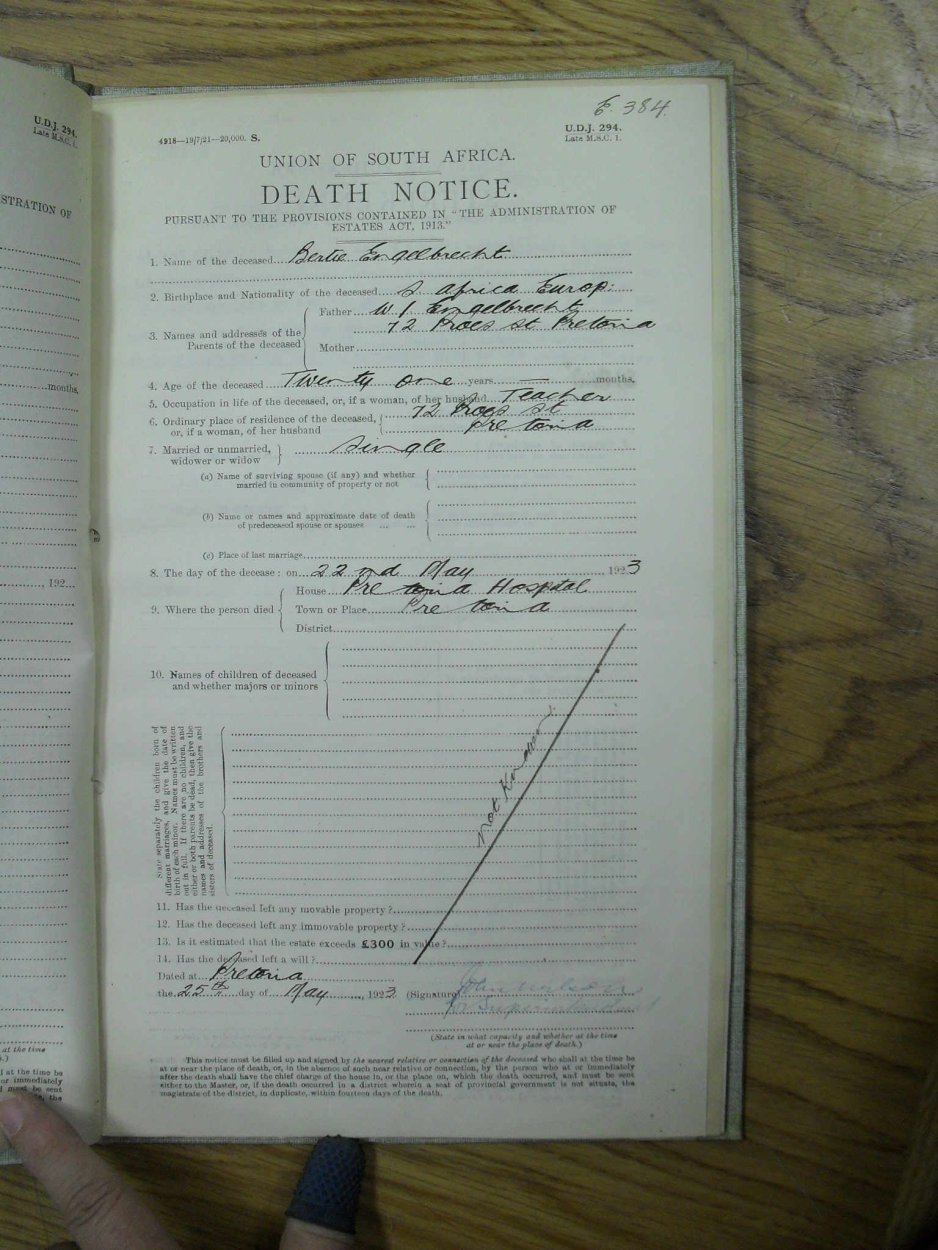 U.D.J. 294.
Late M.S.C. 1.
STRATION OF
months.
192
at the time
.)
l at the time be
or immediately
d must be sent
the
E. 384.
4918—19/7/21—20,000. S.
U.D.J. 294.
Late M.S.C. 1.
UNION OF SOUTH AFRICA.
DEATH NOTICE.
PURSUANT TO THE PROVISIONS CONTAINED IN "THE ADMINISTRATION OF
ESTATES ACT, 1913."
1. Name of the deceased Bertie Engelbrecht
2. Birthplace and Nationality of the deceased S Africa Europ:
3. Names and addresses of the Parents of the deceased
Father W J Engelbrecht
72 Proes St Pretoria
Mother
4. Age of the deceased Twenty one years — months.
5. Occupation in life of the deceased, or, if a woman, of her husband Teacher
6. Ordinary place of residence of the deceased, 72 Proes St
or, if a woman, of her husband Pretoria
7. Married or unmarried, widower or widow Single
(a) Name of surviving spouse (if any) and whether
married in community of property or not
(b) Name or names and approximate date of death
of predeceased spouse or spouses ... ...
(c) Place of last marriage
8. The day of the decease : on 22nd May 1923
9. Where the person died
House Pretoria Hospital
Town or Place Pretoria
District
10. Names of children of deceased
and whether majors or minors
State separately the children born of
different marriages, and give the date of
birth of each minor. Names must be written
out in full. If there are no children, and
either or both parents be dead, then give the
names and addresses of the brothers and
sisters of deceased.
Not Known
11. Has the deceased left any movable property ?
12. Has the deceased left any immovable property ?
13. Is it estimated that the estate exceeds £300 in value ?
14. Has the deceased left a will ?
Dated at Pretoria
the 25th day of May, 1923 (Signature) John
for Superintendent
(State in what capacity and whether at the time
at or near the place of death.)
This notice must be filled up and signed by the nearest relative or connection of the deceased who shall at the time be
at or near the place of death, or, in the absence of such near relative or connection, by the person who at or immediately
after the death shall have the chief charge of the house in, or the place on, which the death occurred, and must be sent
either to the Master, or, if the death occurred in a district wherein a seat of provincial government is not situate, the
magistrate of the district, in duplicate, within fourteen days of the death.